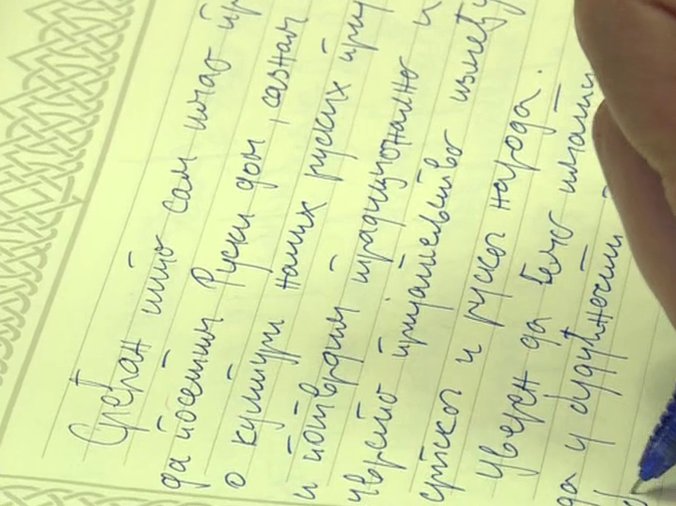 Срећан што сам имао
да посетим Руски дом, сазнам
о култури наших руских
и потврдим традиционално и
чврсто пријатељство између
српског и руског народа.
уверен да ћемо имати
да у будућности